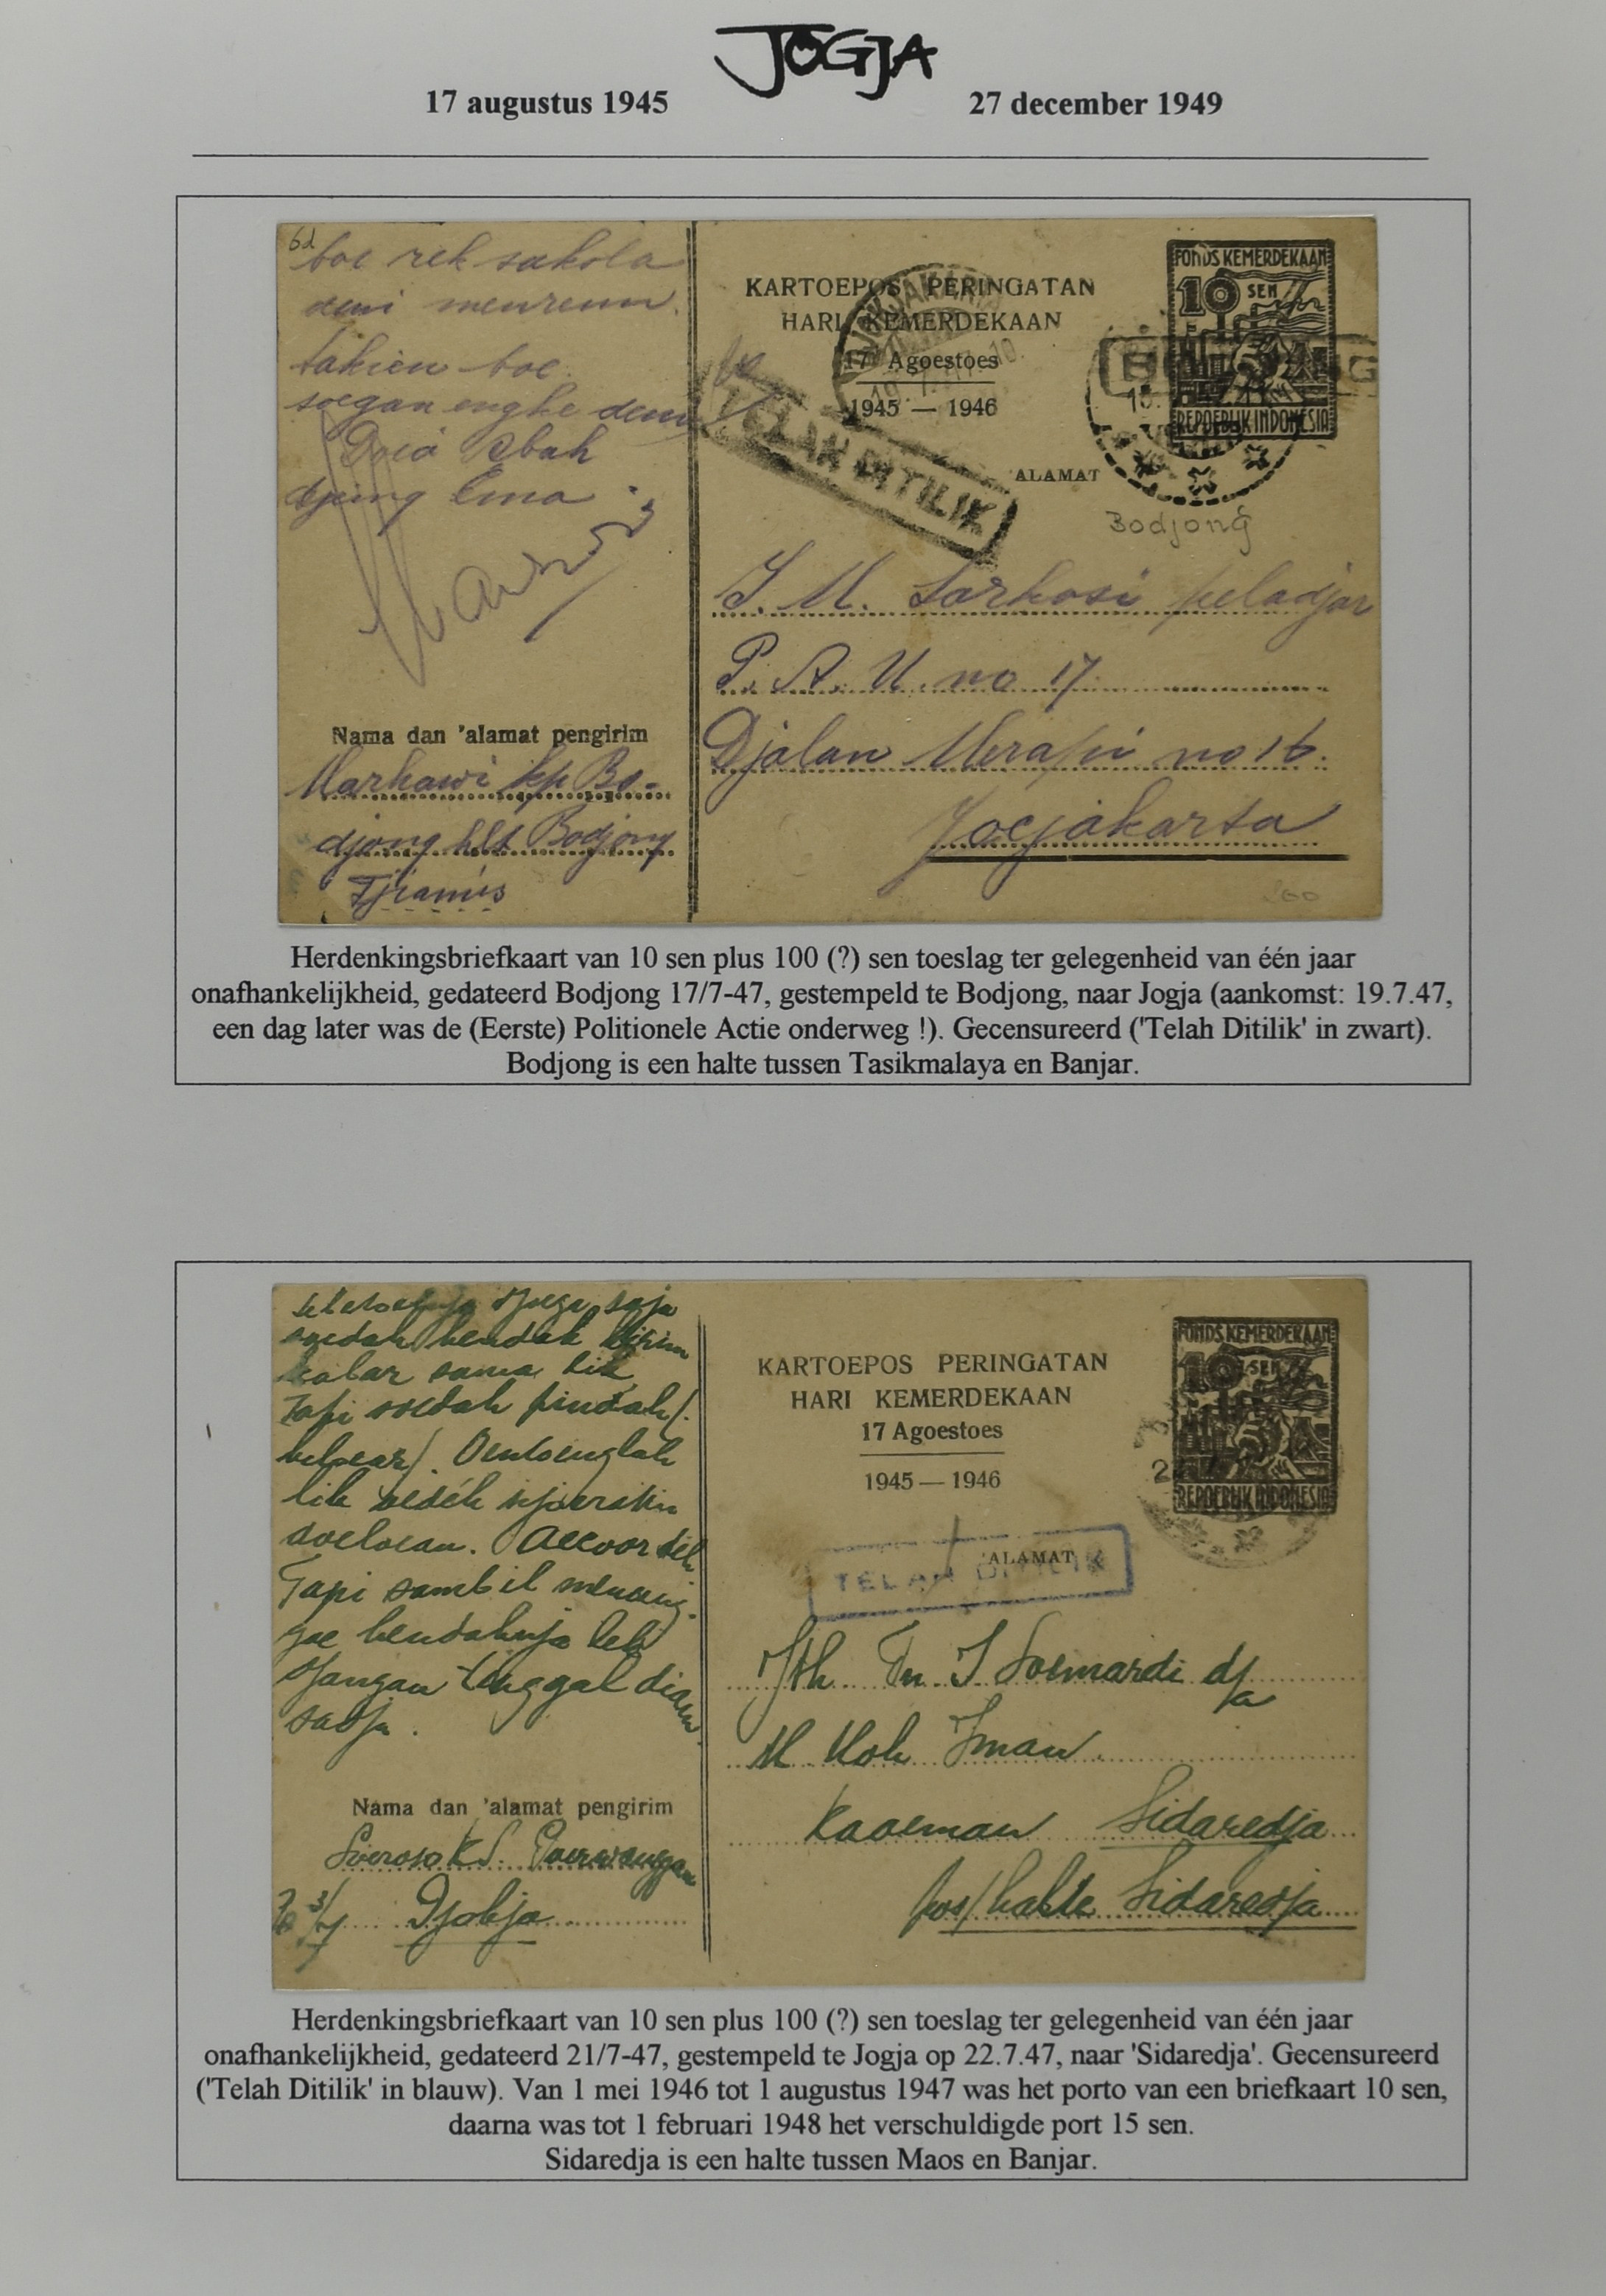 JOGJA
17 augustus 1945
27 december 1949
6d
boe rek sakola
takien boe
soegan enghe
Doea Abah
djeung Ema
Nama dan 'alamat pengirim
Marhawi kp Bo-
djong hlt Bodjong
Tjiamis
KARTOEPOS PERINGATAN
HARI KEMERDEKAAN
17 Agoestoes
1945 — 1946
TELAH DITILIK
'ALAMAT
FONDS KEMERDEKAAN
10 SEN
REPOEBLIK INDONESIA
Bodjong
J. M. Sarkosi peladjar
P. A. U. no 17
Djalan Merapi no 16.
Jogjakarta
Herdenkingsbriefkaart van 10 sen plus 100 (?) sen toeslag ter gelegenheid van één jaar
onafhankelijkheid, gedateerd Bodjong 17/7-47, gestempeld te Bodjong, naar Jogja (aankomst: 19.7.47,
een dag later was de (Eerste) Politionele Actie onderweg !). Gecensureerd ('Telah Ditilik' in zwart).
Bodjong is een halte tussen Tasikmalaya en Banjar.
djoega saja
soedah hendak kirim
kabar sama lik
Tapi soedah pindah/
keloear/. Oentoenglah
lik
soeloean. Accoord
Tapi sambil menoeng-
goe hendaknja
djangan tinggal diam
sadja.
Nama dan 'alamat pengirim
Soeroso K.S.
Djokja
KARTOEPOS PERINGATAN
HARI KEMERDEKAAN
17 Agoestoes
1945 — 1946
FONDS KEMERDEKAAN
10 SEN
REPOEBLIK INDONESIA
'ALAMAT
TELAH DITILIK
Jth Tn. J Soemardi d/a
M Moh Iman
Kaoeman Sidaredja
pos/halte Sidaredja
Herdenkingsbriefkaart van 10 sen plus 100 (?) sen toeslag ter gelegenheid van één jaar
onafhankelijkheid, gedateerd 21/7-47, gestempeld te Jogja op 22.7.47, naar 'Sidaredja'. Gecensureerd
('Telah Ditilik' in blauw). Van 1 mei 1946 tot 1 augustus 1947 was het porto van een briefkaart 10 sen,
daarna was tot 1 februari 1948 het verschuldigde port 15 sen.
Sidaredja is een halte tussen Maos en Banjar.